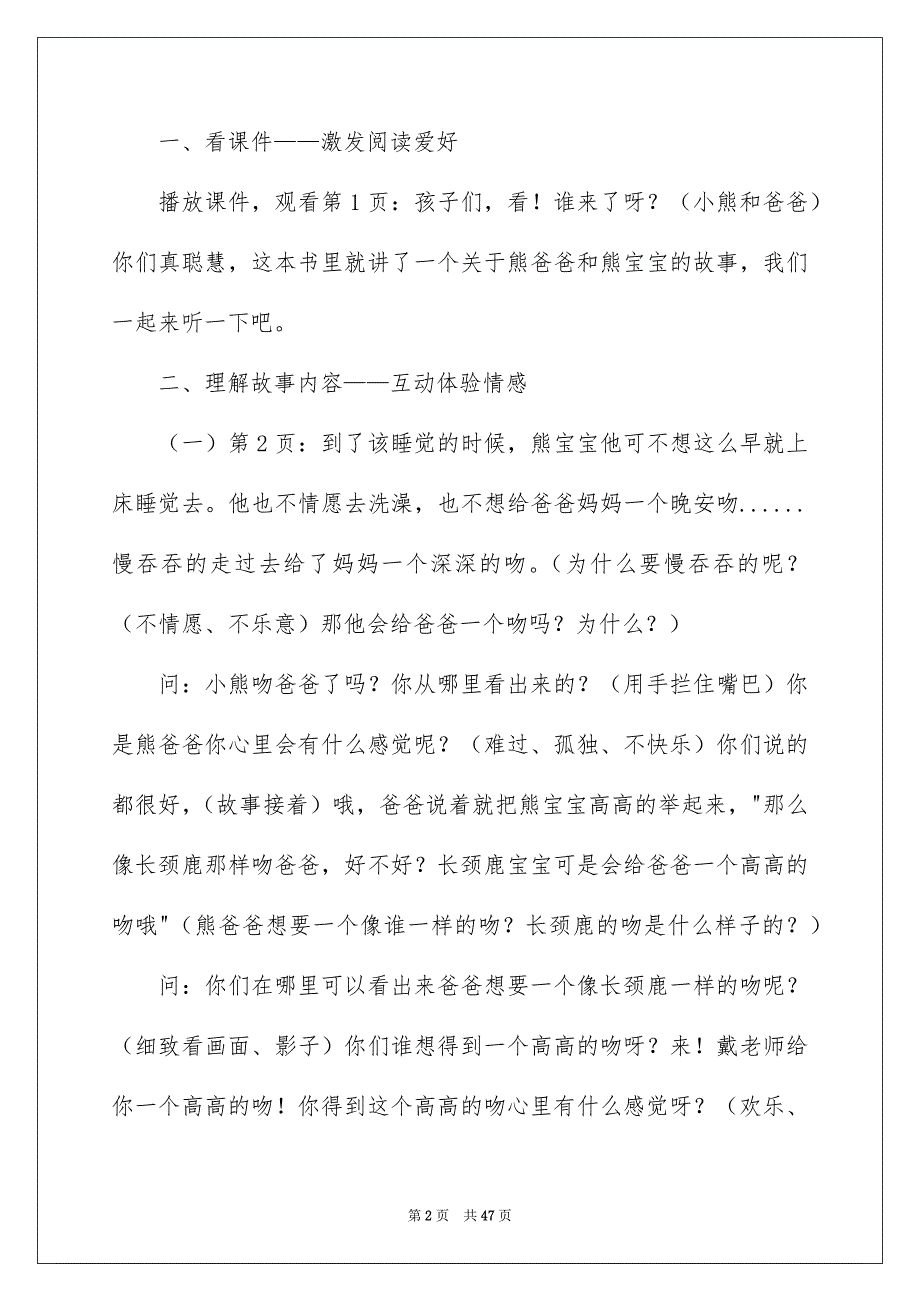 一、看课件——激发阅读爱好
播放课件，观看第1页：孩子们，看！谁来了呀？（小熊和爸爸）
你们真聪慧，这本书里就讲了一个关于熊爸爸和熊宝宝的故事，我们
一起来听一下吧。
二、理解故事内容——互动体验情感
（一）第2页：到了该睡觉的时候，熊宝宝他可不想这么早就上
床睡觉去。他也不情愿去洗澡，也不想给爸爸妈妈一个晚安吻......
慢吞吞的走过去给了妈妈一个深深的吻。（为什么要慢吞吞的呢？
（不情愿、不乐意）那他会给爸爸一个吻吗？为什么？）
问：小熊吻爸爸了吗？你从哪里看出来的？（用手拦住嘴巴）你
是熊爸爸你心里会有什么感觉呢？（难过、孤独、不快乐）你们说的
都很好，（故事接着）哦，爸爸说着就把熊宝宝高高的举起来，"那么
像长颈鹿那样吻爸爸，好不好？长颈鹿宝宝可是会给爸爸一个高高的
吻哦"（熊爸爸想要一个像谁一样的吻？长颈鹿的吻是什么样子的？）
问：你们在哪里可以看出来爸爸想要一个像长颈鹿一样的吻呢？
（细致看画面、影子）你们谁想得到一个高高的吻呀？来！戴老师给
你一个高高的吻！你得到这个高高的吻心里有什么感觉呀？（欢乐、
第2页 共47页